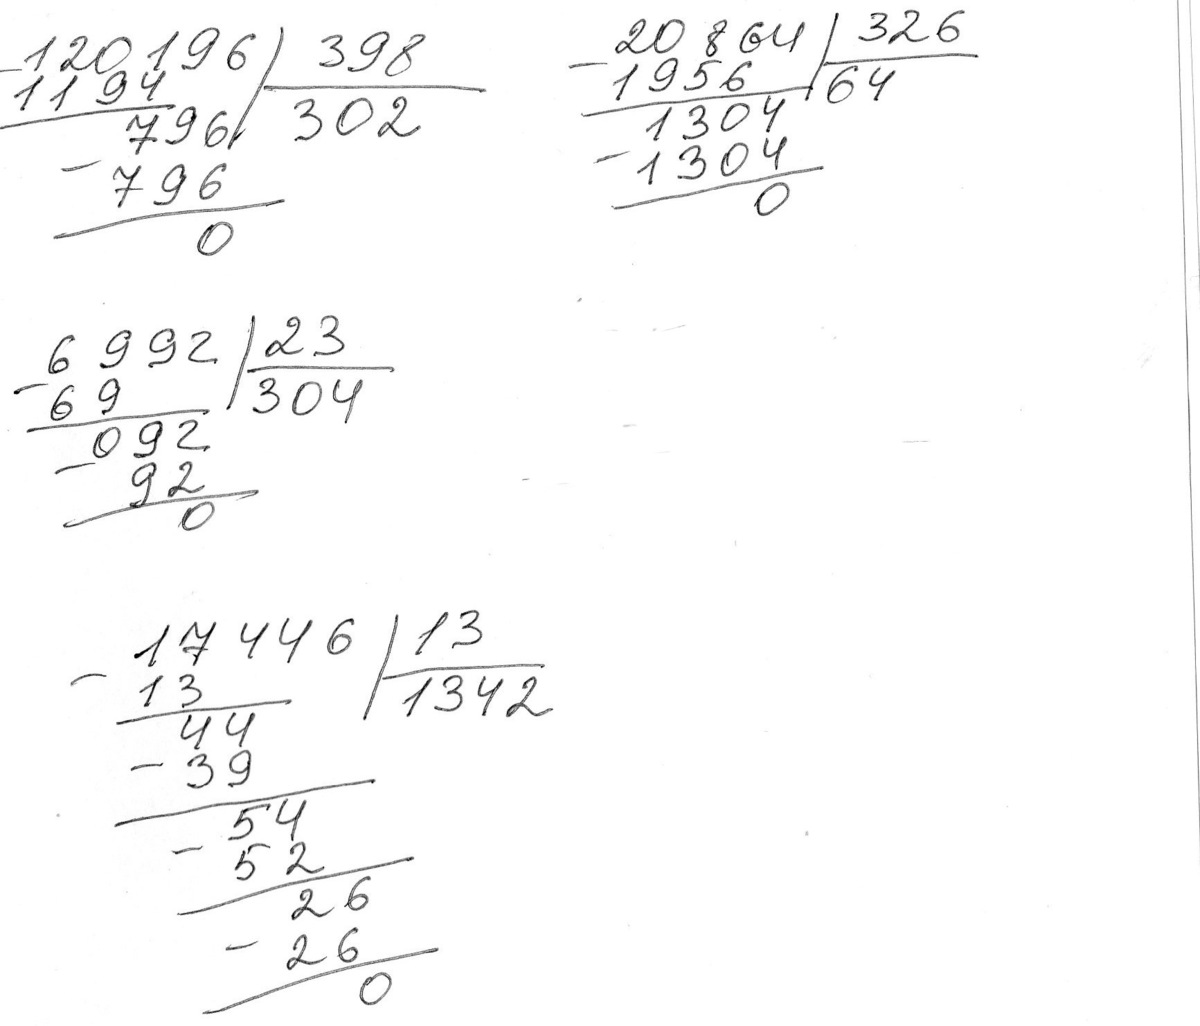 120196 398
- 1194 302
796
- 796
0
20864 326
- 1956 64
1304
- 1304
0
6992 23
- 69 304
092
- 92
0
17446 13
- 13 1342
44
- 39
54
- 52
26
- 26
0